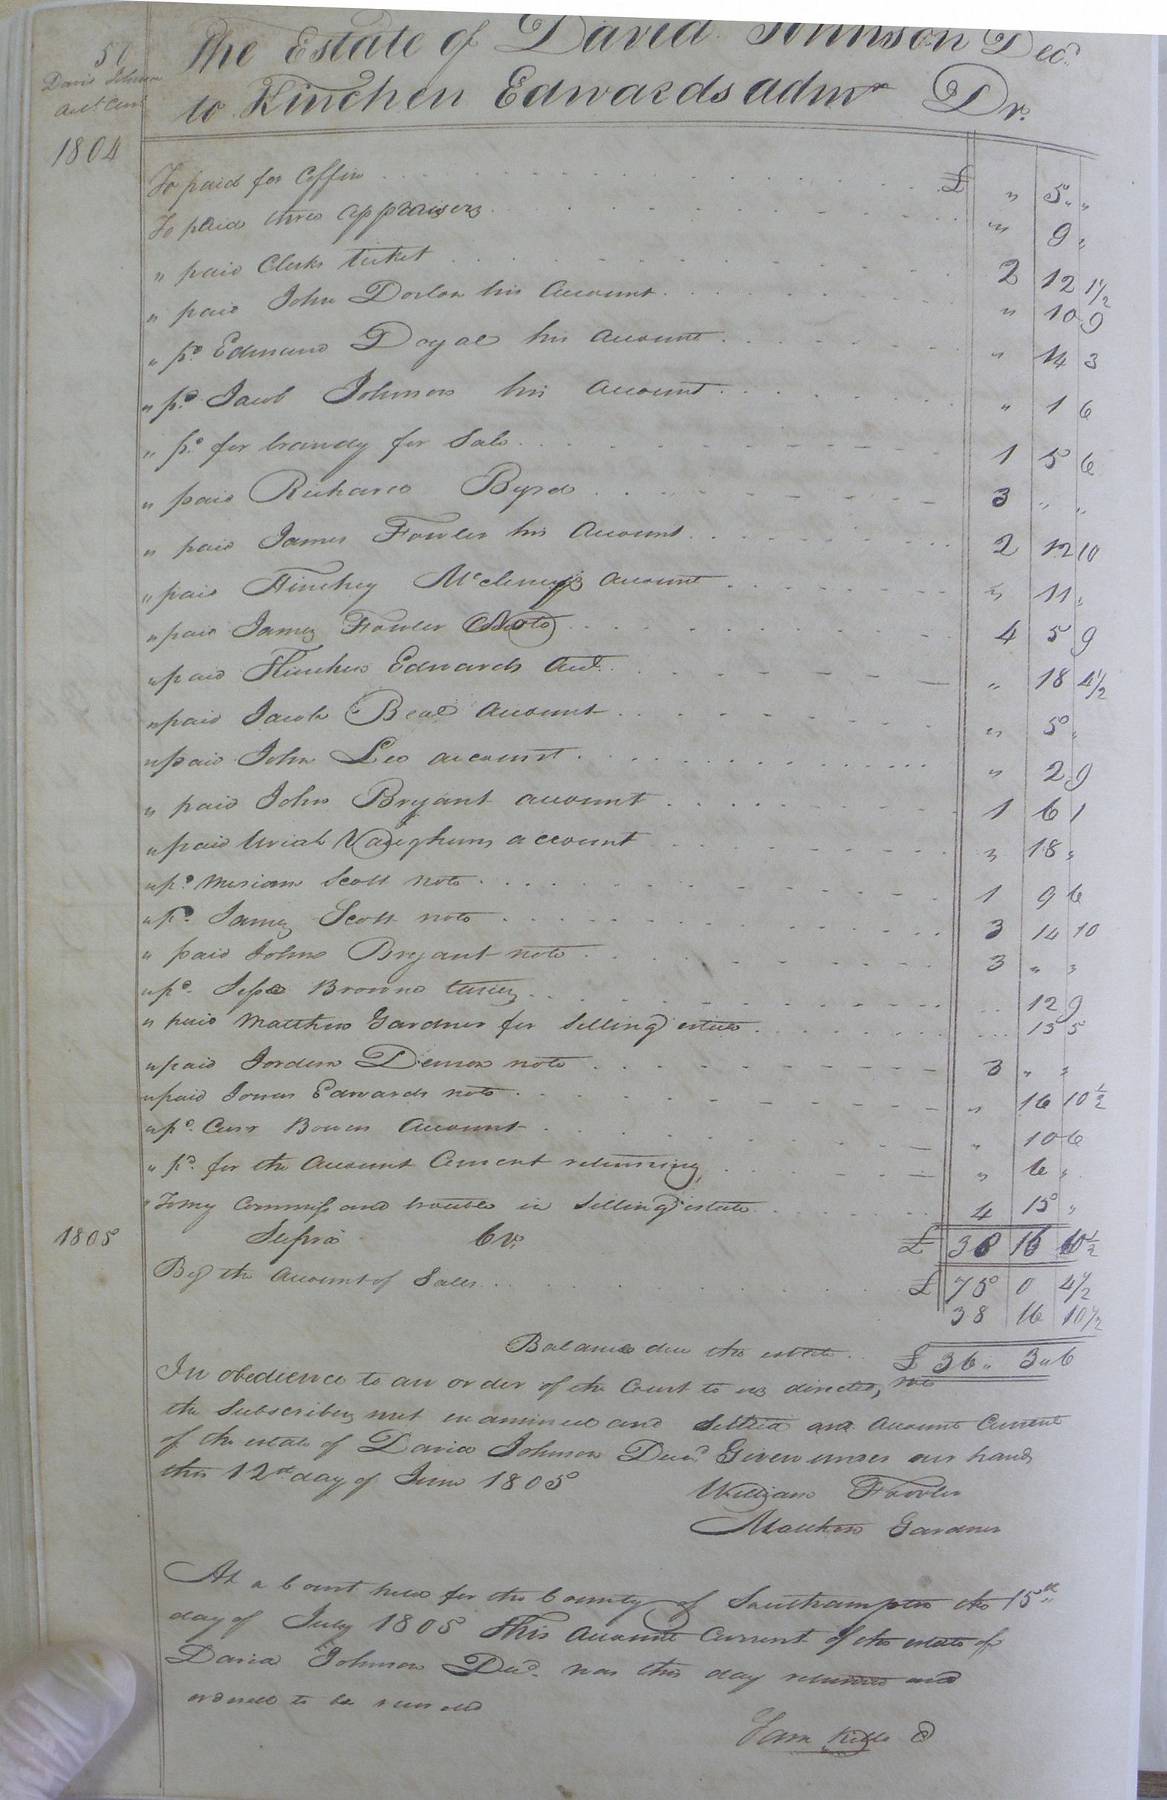 57
David Johnson
Acct Curt
The Estate of David Johnson Decd.
to Kinchen Edwards admr Dr.
1804
To paid for Coffin £ " 5 "
To paid three appraisers " 9 "
" paid Clerks ticket 2 12 1½
" paid John Dorlon his Account " 10 9
" pd. Edmund Doyal his Account " 14 3
" pd. Jacob Johnson his Account " 1 6
" pd. for brandy for Sale 1 5 6
" paid Richard Byrd 3 " "
" paid James Fowler his Account 2 12 10
" paid Hinchey Mcclenys Account " 11 "
" paid James Fowler (Note) 4 5 9
" paid Kinchen Edwards Act. " 18 4½
" paid Jacob Beal Account " 5 "
" paid John Leo account " 2 9
" paid John Bryant account 1 6 1
" paid Uriah Vaughans account " 18 "
" pd. Miriam Scott note 1 9 6
" pd. James Scott note 3 14 10
" paid John Bryant note 3 " "
" pd. Jesse Browne 12 9
" paid Matthew Gardner for Selling estate 15 5
" paid Jordan Denson note 3 " "
" paid Jonas Edwards note " 16 10½
" pd. Carr Bowers Account " 10 6
" pd. for the Account Current returning " 6 "
" To my Commiss and trouble in Selling estate 4 15 "
1805 Supra Cr. £ 38 16 10½
By the Account of Sales £ 75 0 4½
38 16 10½
Balance due the estate £ 36 " 3 " 6
In obedience to an order of the Court to us directed, we
the Subscribers met examined and Settled and Account Current
of the estate of David Johnson Decd. Given under our hands
this 12th day of June 1805
William Fowler
Matthew Gardner
At a Court held for the County of Southampton the 15th
day of July 1805 This Account Current of the estate of
David Johnson Decd. was this day returned and
ordered to be recorded
Sam Kello C